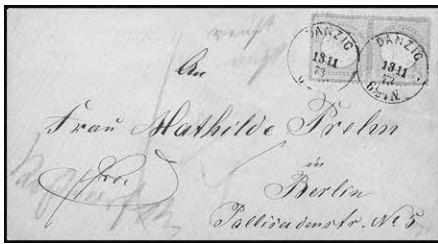 DANZIG
13 11
73
DANZIG
13 11
73
An
Frau Mathilde Prelm
in
Berlin
Pallisadenstr. No 5